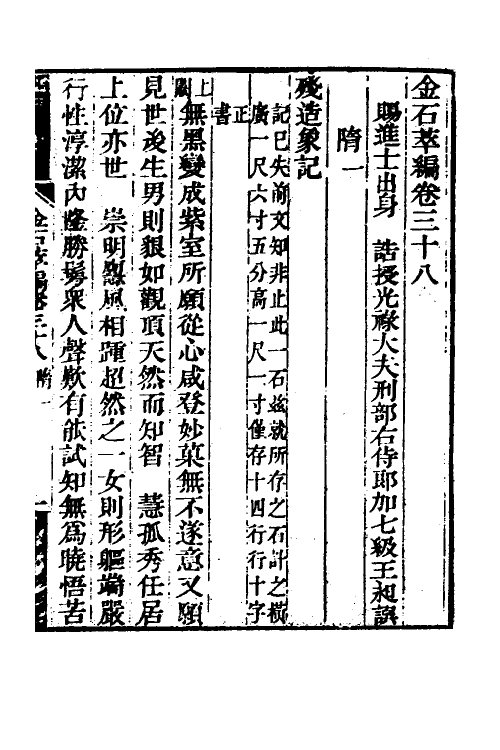 金石萃編卷三十八
賜進士出身　誥授光祿大夫刑部右侍郎加七級王昶譔
隋一
殘造象記
記已失前文知非止此一石玆就所存之石計之橫
廣一尺六寸五分高一尺一寸僅存十四行行十字
正書
上闕無黑變成紫室所願從心咸登妙菓無不遂意又願
見世後生男則狠如觀頂天然而知智　慧孤秀任居
上位亦世　崇明懃風相踵超然之一女則形軀端嚴
行性淳潔内隆勝髣衆人聲歎有能試知無爲曉悟苦
金石萃編卷三十八　隋一　一